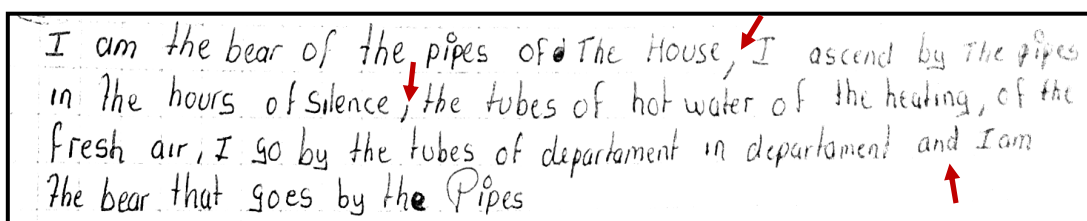 I am the bear of the pipes of The House, I ascend by The pipes
in The hours of silence, the tubes of hot water of the heating, of the
fresh air, I go by the tubes of departament in departament and I am
The bear that goes by the Pipes